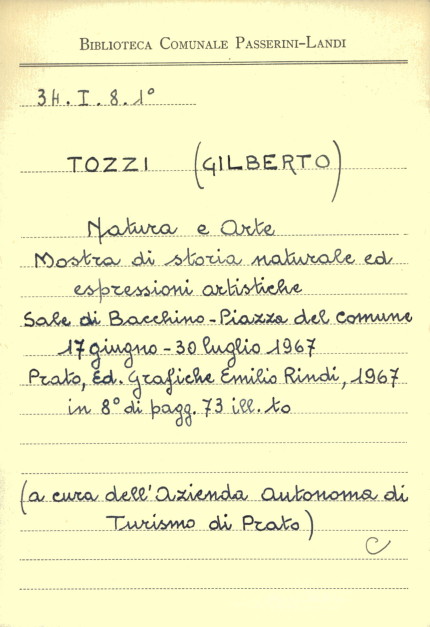 BIBLIOTECA COMUNALE PASSERINI-LANDI
3H. I. 8. 1°
TOZZI (GILBERTO)
Natura e Arte
Mostra di storia naturale ed
espressioni artistiche
Sale di Bacchino - Piazza del Comune
17 giugno - 30 luglio 1967
Prato, Ed. Grafiche Emilio Rindi, 1967
in 8° di pagg. 73 ill. to
(a cura dell'Azienda Autonoma di
Turismo di Prato)
C